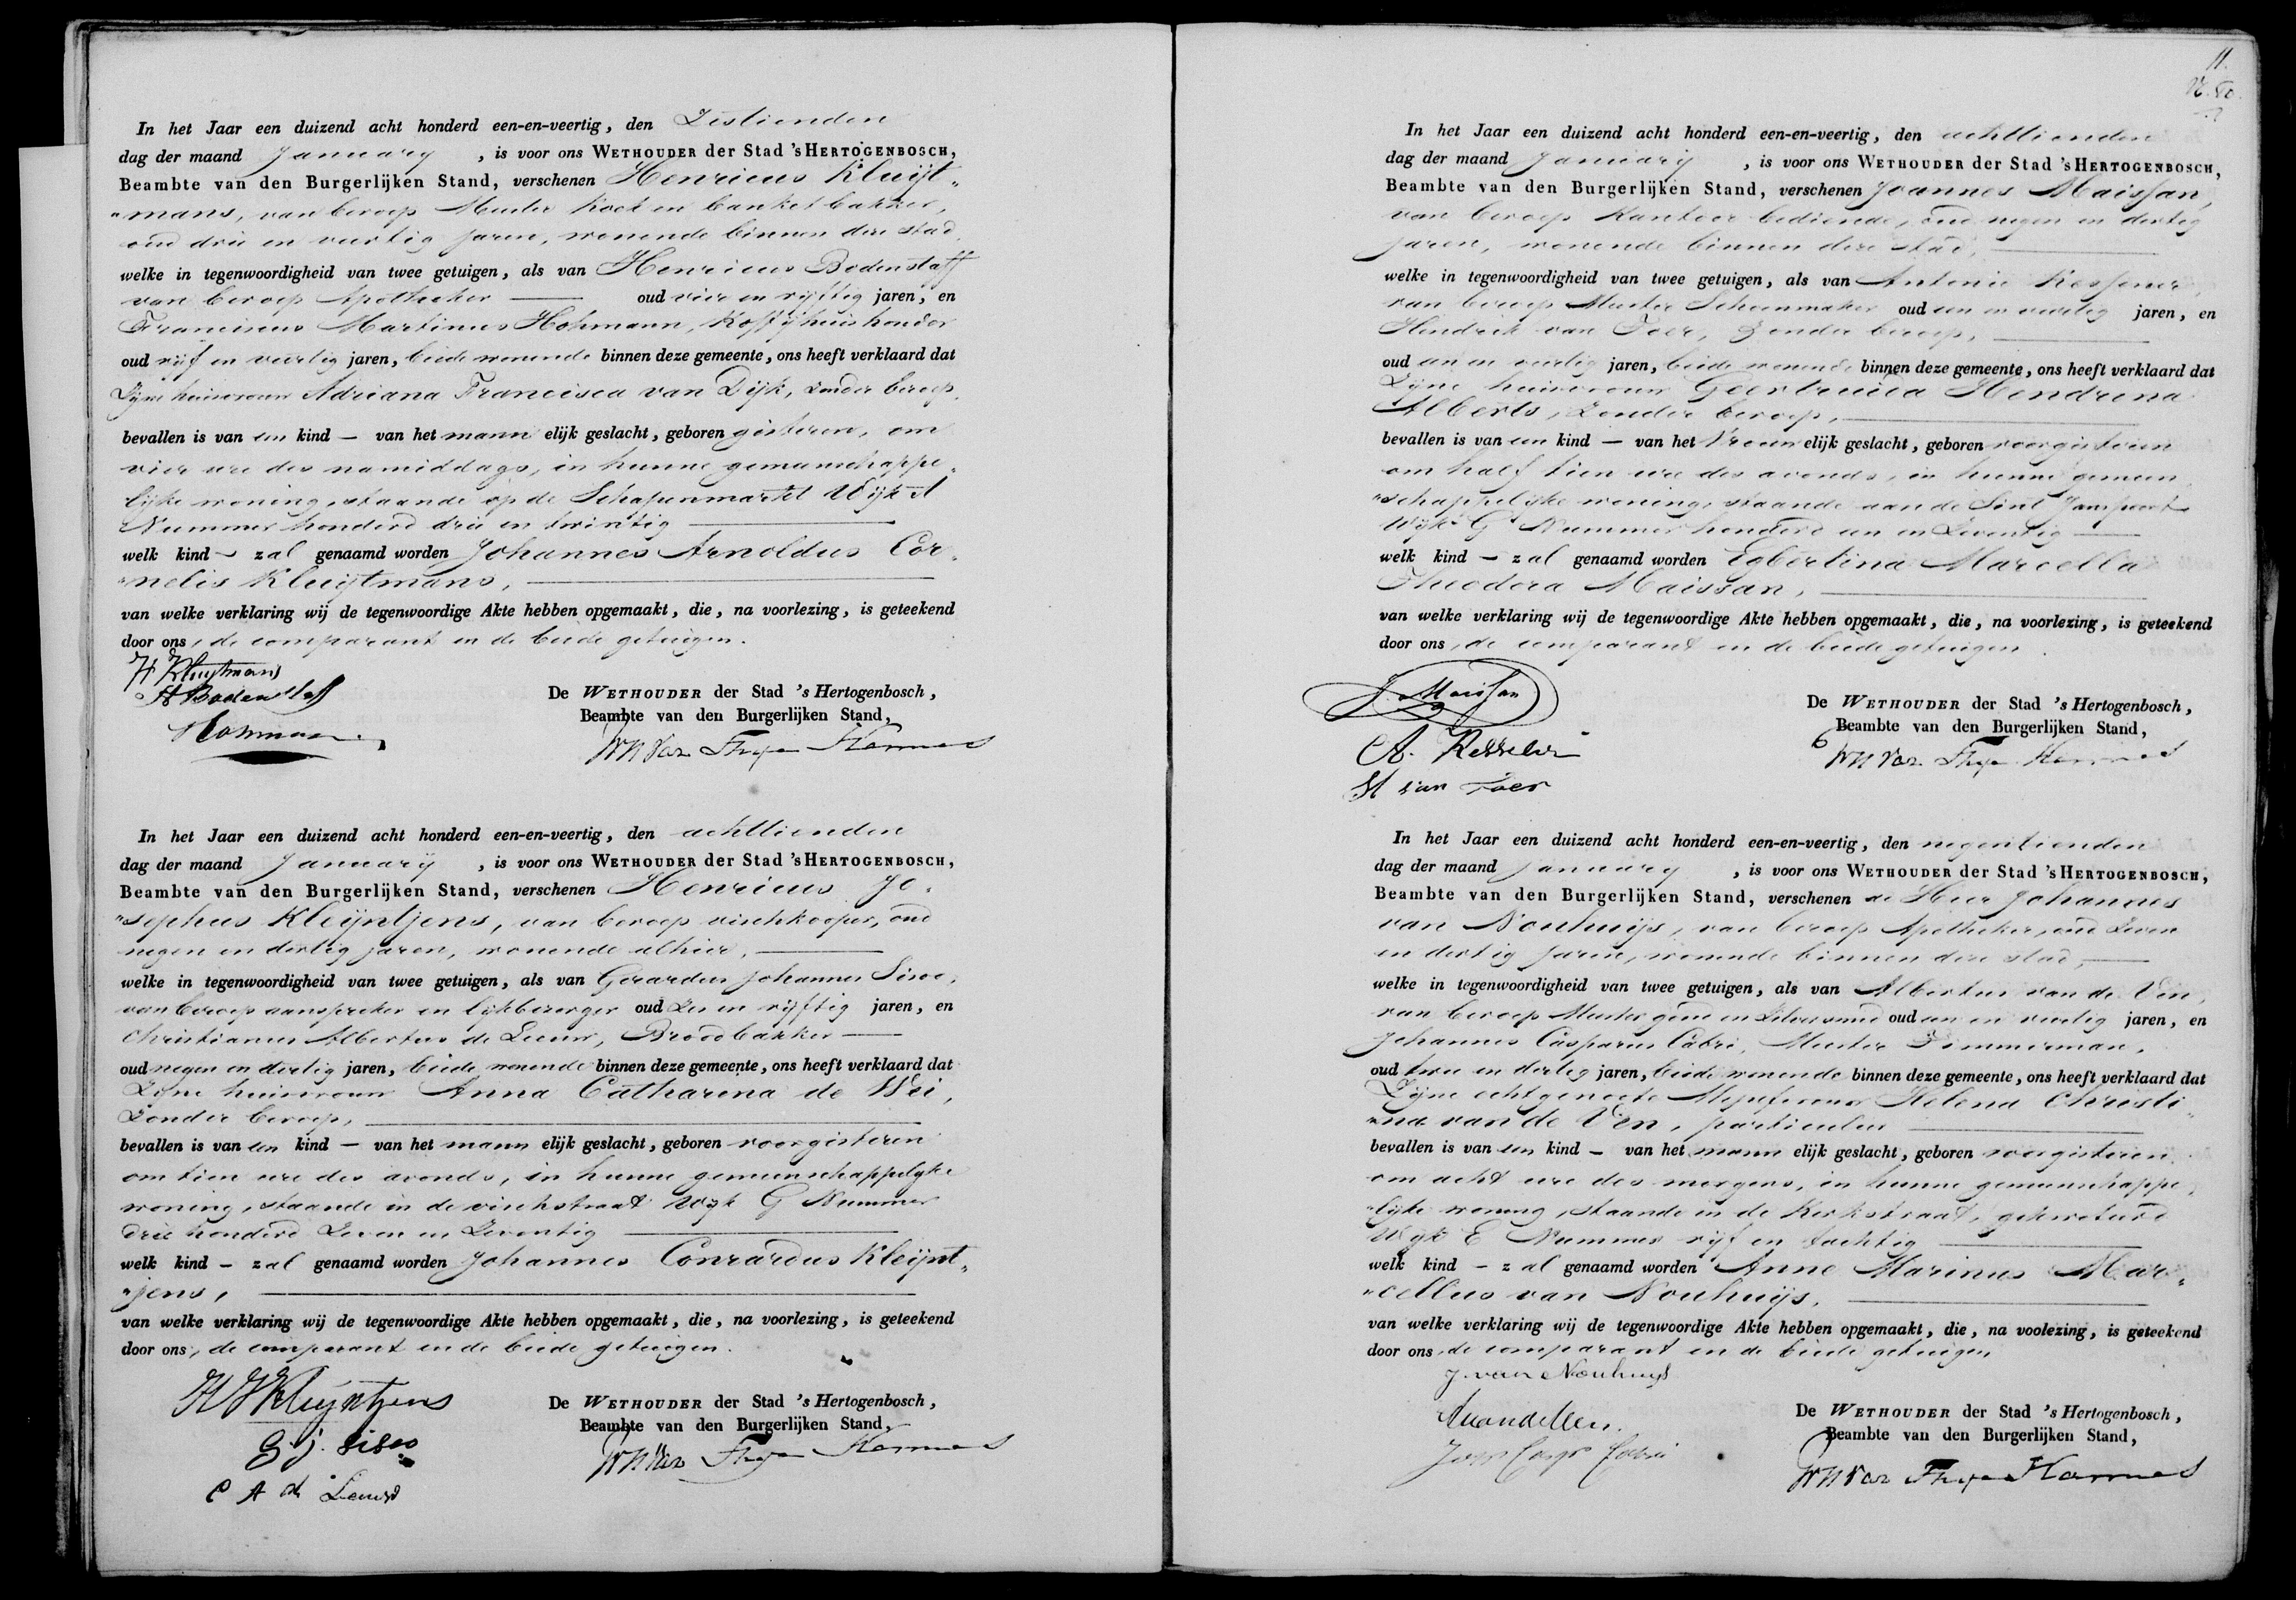 In het Jaar een duizend acht honderd een-en-veertig, den Zestienden
dag der maand January , is voor ons WETHOUDER der Stad 'sHERTOGENBOSCH,
Beambte van den Burgerlijken Stand, verschenen Henricus Kluijt„
„mans, van beroep Meester Kock en banketbakker,
oud drie en veertig jaren, wonende binnen deze stad,
welke in tegenwoordigheid van twee getuigen, als van Henricus Bodenstaff
van beroep Apotheker — oud vier en vijftig jaren, en
Franciscus Martinus Hohmann, Koffijhuishouder
oud vijf en veertig jaren, beide wonende binnen deze gemeente, ons heeft verklaard dat
Zijne huisvrouw Adriana Francisca van Dijk, zonder beroep,
bevallen is van een kind — van het mann elijk geslacht, geboren gisteren, om
vier ure des namiddags, in hunne gemeenschappe„
lijke woning, staande op de Schapenmarkt Wijk A
Nummer honderd drie en twintig —
welk kind — zal genaamd worden Johannes Arnoldus Cor„
„nelis Kluijtmans, —
van welke verklaring wij de tegenwoordige Akte hebben opgemaakt, die, na voorlezing, is geteekend
door ons, de comparant en de beide getuigen.
H Kluytmans
H Bodenstaff
Hohmann
De WETHOUDER der Stad 's Hertogenbosch,
Beambte van den Burgerlijken Stand,
In het Jaar een duizend acht honderd een-en-veertig, den achttienden
dag der maand January , is voor ons WETHOUDER der Stad 'sHERTOGENBOSCH,
Beambte van den Burgerlijken Stand, verschenen Henricus Jo„
„sephus Kleijntjens, van beroep vischkooper, oud
negen en dertig jaren, wonende alhier, —
welke in tegenwoordigheid van twee getuigen, als van Gerardus Johannes Siso,
van beroep aanspreker en lijkbezorger oud zes en vijftig jaren, en
Christianus Albertus de Leeuw, Broodbakker —
oud negen en dertig jaren, beide wonende binnen deze gemeente, ons heeft verklaard dat
Zijne huisvrouw Anna Catharina de Wei,
Zonder beroep, —
bevallen is van een kind — van het mann elijk geslacht, geboren voorgisteren
om tien ure des avonds, in hunne gemeenschappelijke
woning, staande in de vischstraat Wijk G Nummer
drie honderd Zeven en Zeventig —
welk kind — zal genaamd worden Johannes Conrardus Kleijnt„
„jens, —
van welke verklaring wij de tegenwoordige Akte hebben opgemaakt, die, na voorlezing, is geteekend
door ons, de comparant en de beide getuigen.
H J Kleijntjens
G. J. Siso
C A de Leeuw
De WETHOUDER der Stad 's Hertogenbosch,
Beambte van den Burgerlijken Stand,
11.
In het Jaar een duizend acht honderd een-en-veertig, den achttienden
dag der maand January , is voor ons WETHOUDER der Stad 'sHERTOGENBOSCH,
Beambte van den Burgerlijken Stand, verschenen Joannes Maissan,
van beroep Kantoor bediende, oud negen en dertig
jaren, wonende binnen deze stad, —
welke in tegenwoordigheid van twee getuigen, als van Antonie Kesseler,
van beroep Meester Schoenmaker oud een en veertig jaren, en
Hendrik van Toer, Zonder beroep, —
oud een en veertig jaren, beide wonende binnen deze gemeente, ons heeft verklaard dat
Zijne huisvrouw Geertruida Hendrina
Alberts, Zonder beroep, —
bevallen is van een kind — van het Vrouw elijk geslacht, geboren voorgisteren
om half tien ure des avonds, in hunne gemeen„
„schappelijke woning, staande aan de Sint Janspoort
Wijk G Nummer honderd een en Zeventig —
welk kind — zal genaamd worden Egbertina Marcella
Theodora Maissan, —
van welke verklaring wij de tegenwoordige Akte hebben opgemaakt, die, na voorlezing, is geteekend
door ons, de comparant en de beide getuigen.
J. Maissan
A. Kesseler
H van Toer
De WETHOUDER der Stad 's Hertogenbosch,
Beambte van den Burgerlijken Stand,
In het Jaar een duizend acht honderd een-en-veertig, den negentienden
dag der maand January , is voor ons WETHOUDER der Stad 'sHERTOGENBOSCH,
Beambte van den Burgerlijken Stand, verschenen de Heer Johannes
van Nouhuijs, van beroep Apotheker, oud Zeven
en dertig jaren, wonende binnen deze stad, —
welke in tegenwoordigheid van twee getuigen, als van Albertus van de Ven,
van beroep Meester goud en Zilversmid oud een en veertig jaren, en
Johannes Casparus Cabri, Meester Timmerman,
oud twee en dertig jaren, beide wonende binnen deze gemeente, ons heeft verklaard dat
Zijne echtgenoote Mejufvrouw Helena Christi„
„na van de Ven, particuliere —
bevallen is van een kind — van het mann elijk geslacht, geboren voorgisteren
om acht ure des morgens, in hunne gemeenschappe„
„lijke woning, staande in de Kerkstraat, gekwoteerd
Wijk E Nummer vijf en tachtig —
welk kind — zal genaamd worden Anne Marinus Mar„
„cellus van Nouhuijs, —
van welke verklaring wij de tegenwoordige Akte hebben opgemaakt, die, na voolezing, is geteekend
door ons, de comparant en de beide getuigen
J. van Nouhuys
A van de Ven.
Joh Casp Cabri
De WETHOUDER der Stad 's Hertogenbosch,
Beambte van den Burgerlijken Stand,